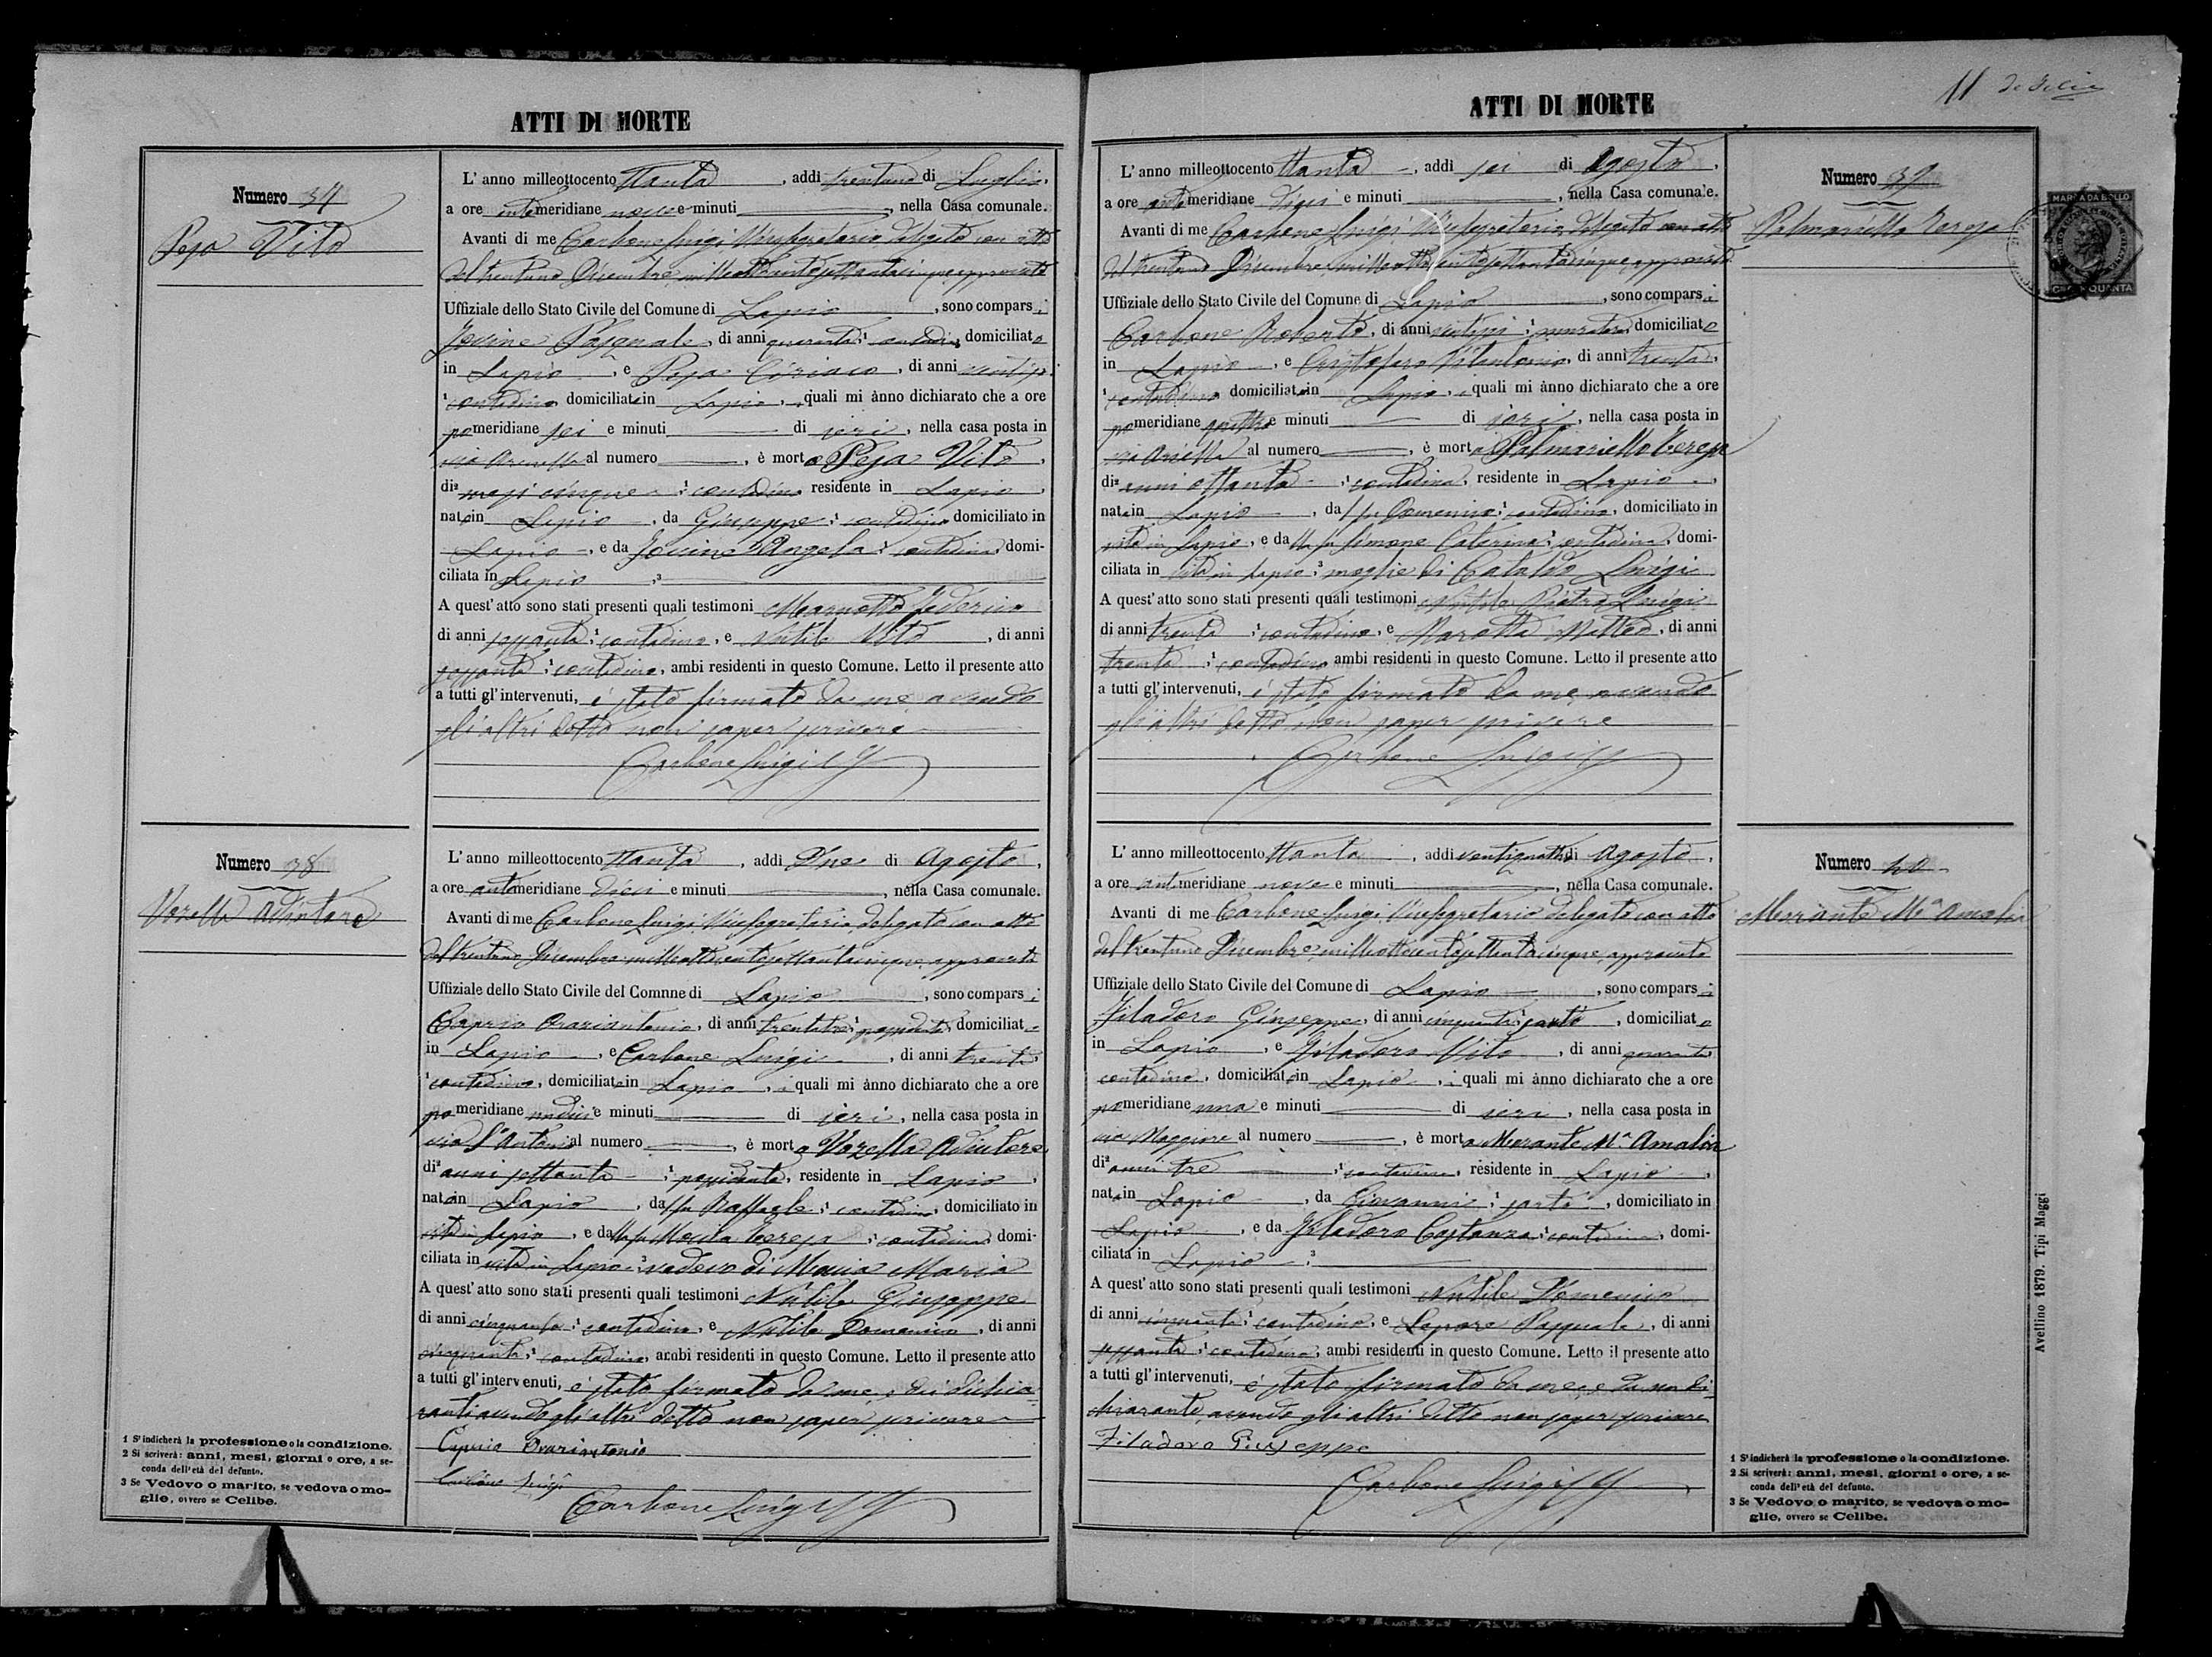 ATTI DI MORTE
Numero 37
Pesa Vito
L' anno milleottocento ttanta, addì trentuno di Luglio,
a ore antemeridiane nove e minuti, nella Casa comunale.
Avanti di me Carbone Luigi Vicesegretario delegato con atto
del trentuno Dicembre milleottocentosettantacinque approvato
Uffiziale dello Stato Civile del Comune di Lapio, sono comparsi
Iovine Pasquale, di anni quaranta, contadino, domiciliato
in Lapio, e Pesa Ciriaco, di anni ventisei
contadino domiciliato in Lapio, i quali mi ànno dichiarato che a ore
pomeridiane sei e minuti di ieri, nella casa posta in
via al numero, è morto Pesa Vito,
di mesi cinque, contadino residente in Lapio,
nato in Lapio, da Giuseppe, contadino domiciliato in
Lapio, e da Iovine Angela, contadina, domi-
ciliata in Lapio
A quest' atto sono stati presenti quali testimoni Federico
di anni sessanta, contadino, e Nutile Vito, di anni
sessanta, contadino, ambi residenti in questo Comune. Letto il presente atto
a tutti gl' intervenuti, è stato firmato da me avendo
gli altri detto non saper scrivere
Carbone Luigi
Numero 38
Vozella Adiutore
L' anno milleottocento ttanta, addì Due di Agosto,
a ore antimeridiane dieci e minuti, nella Casa comunale.
Avanti di me Carbone Luigi Vicesegretario delegato con atto
del trentuno Dicembre milleottocentosettantacinque approvato
Uffiziale dello Stato Civile del Comnne di Lapio, sono comparsi
Caprio Oraziantonio, di anni trentatre, possidente, domiciliato
in Lapio, e Carbone Luigi, di anni trenta,
contadino, domiciliato in Lapio, i quali mi ànno dichiarato che a ore
pomeridiane undici e minuti di ieri, nella casa posta in
via S. Antonio al numero, è morto Vozella Adiutore
di anni settanta, possidente, residente in Lapio,
nato in Lapio, da fu Raffaele, contadino, domiciliato in
vita in Lapio, e da fu Teresa, contadina, domi-
ciliata in vita in Lapio, vedovo di Maria
A quest' atto sono stati presenti quali testimoni Nutile Giuseppe
di anni cinquanta, contadino, e Nutile Domenico, di anni
cinquanta, contadino, ambi residenti in questo Comune. Letto il presente atto
a tutti gl' intervenuti, è stato firmato da me e dai dichia
ranti avendo gli altri detto non saper scrivere
Caprio Oraziantonio
Carbone Luigi
Carbone Luigi
1 S' indicherà la professione o la condizione.
2 Si scriverà: anni, mesi, giorni o ore, a se-
conda dell' età del defunto.
3 Se Vedovo o marito, se vedova o mo-
glie, ovvero se Celibe.
11
ATTI DI MORTE
Numero 39
Palmariello Teresa
MARCA DA BOLLO
L' anno milleottocento ttanta, addì sei di Agosto,
a ore antemeridiane dieci e minuti, nella Casa comunale.
Avanti di me Carbone Luigi Vicesegretario delegato con atto
del trentuno Dicembre milleottocentosettantacinque approvato
Uffiziale dello Stato Civile del Comune di Lapio, sono comparsi
Carbone Roberto, di anni ventisei, muratore, domiciliato
in Lapio, e Cristofaro Vitantonio, di anni trenta,
contadino domiciliato in Lapio, i quali mi ànno dichiarato che a ore
pomeridiane quattro e minuti di ieri, nella casa posta in
via al numero, è morta Palmariello Teresa
di anni ottanta, contadina, residente in Lapio,
nata in Lapio, da fu Domenico, contadino, domiciliato in
vita in Lapio, e da fu Simone Caterina, contadina, domi-
ciliata in vita in Lapio, moglie di Cataldo Luigi
A quest' atto sono stati presenti quali testimoni Nutile Pietro Luigi
di anni trenta, contadino, e Marotta Matteo, di anni
trenta, contadino ambi residenti in questo Comune. Letto il presente atto
a tutti gl' intervenuti, è stato firmato da me avendo
gli altri detto non saper scrivere
Carbone Luigi
Numero 40
Morante Mª Amalia
L' anno milleottocento ttanta, addì ventiquattro di Agosto,
a ore antimeridiane nove e minuti, nella Casa comunale.
Avanti di me Carbone Luigi Vicesegretario delegato con atto
del trentuno Dicembre milleottocentosettantacinque approvato
Uffiziale dello Stato Civile del Comune di Lapio, sono comparsi
Filadoro Giuseppe, di anni cinquanta, sarto, domiciliato
in Lapio, e Filadoro Vito, di anni quaranta
contadino, domiciliato in Lapio, i quali mi ànno dichiarato che a ore
pomeridiane una e minuti di ieri, nella casa posta in
via Maggiore al numero, è morta Morante Mª Amalia
di anni tre, contadina, residente in Lapio,
nata in Lapio, da Giovanni, sarto, domiciliato in
Lapio, e da Filadoro Costanza, contadina, domi-
ciliata in Lapio
A quest' atto sono stati presenti quali testimoni Nutile Domenico
di anni cinquanta, contadino, e Lepore Pasquale, di anni
sessanta, contadino, ambi residenti in questo Comune. Letto il presente atto
a tutti gl' intervenuti, è stato firmato da me e da un di-
chiarante, avendo gli altri detto non saper scrivere
Filadoro Giuseppe
Carbone Luigi
1 S' indicherà la professione o la condizione.
2 Si scriverà: anni, mesi, giorni o ore, a se-
conda dell' età del defunto.
3 Se Vedovo o marito, se vedova o mo-
glie, ovvero se Celibe.
Avellino 1879. Tipi Maggi